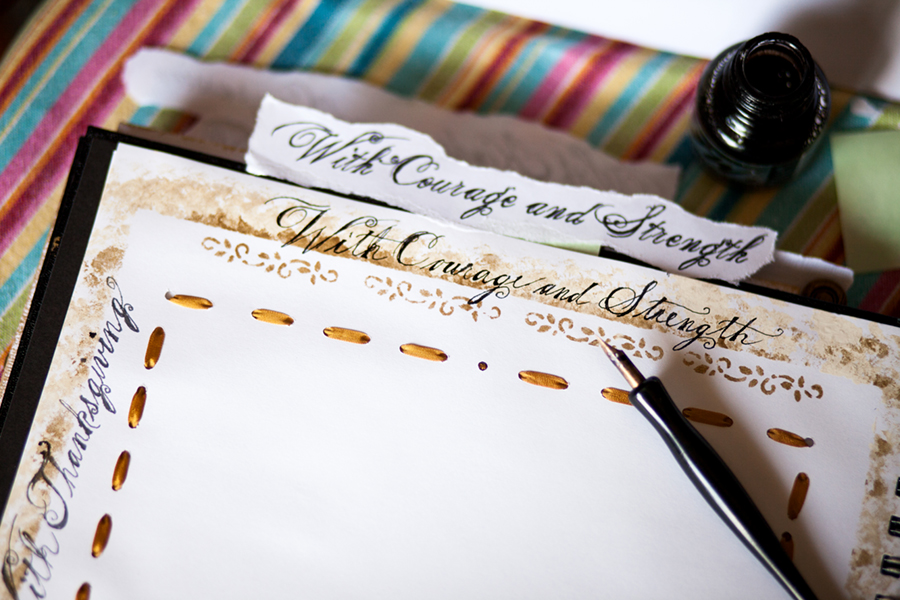 With Courage and Strength
With Courage and Strength
With Thanksgiving